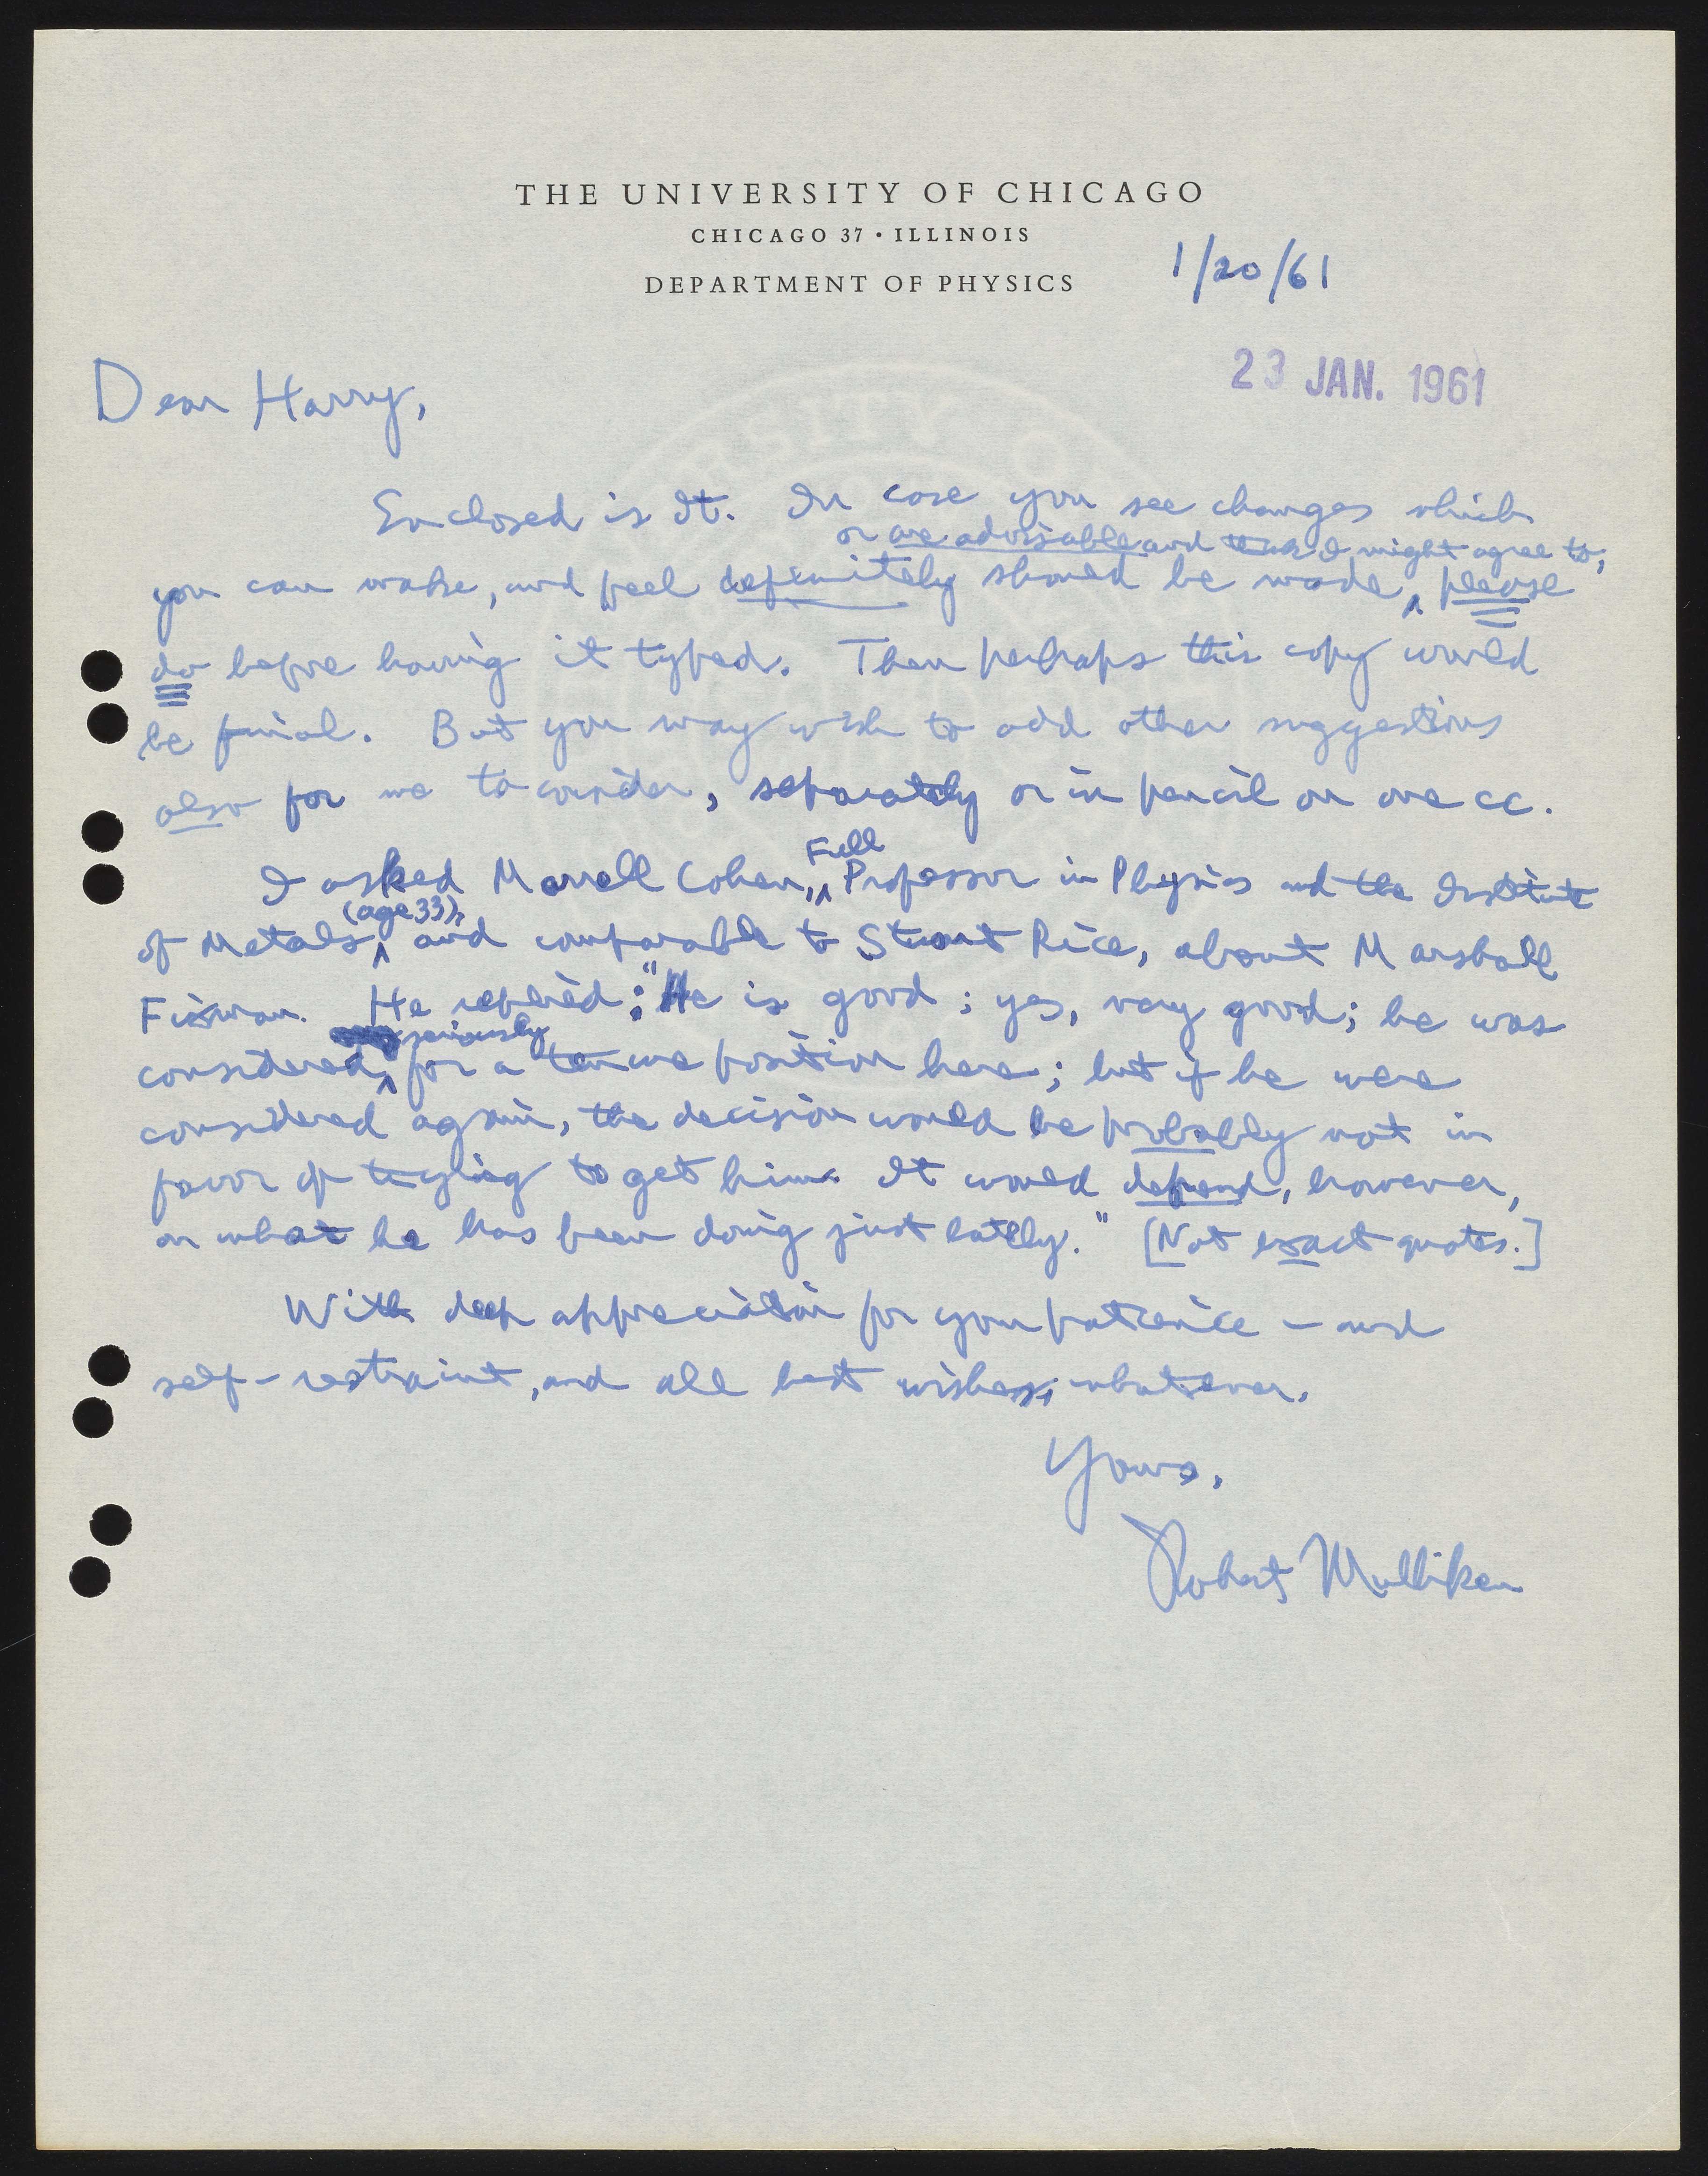 THE UNIVERSITY OF CHICAGO
CHICAGO 37 • ILLINOIS
DEPARTMENT OF PHYSICS
1/20/61
23 JAN. 1961
Dear Harry,
Enclosed is It. In case you see changes which
or are advisable and I might agree to;
you can make, and feel definitely should be made, please
do before having it typed. Then perhaps this copy would
be final. But you may wish to add other suggestions
also for me to consider, separately or in pencil on one cc.
Full
I asked Morrell Cohen, Professor in Physics and the Institute
(age 33),
of Metals, and comparable to Stuart Rice, about Marshall
Fixman. He replied: "He is good; yes, very good; he was
seriously
considered for a tenure position here; but if he were
considered again, the decision would be probably not in
favor of trying to get him. It would depend, however,
on what he has been doing just lately." [Not exact quotes.]
With deep appreciation for your patience – and
self-restraint, and all best wishes, whatever.
Yours,
Robert Mulliken